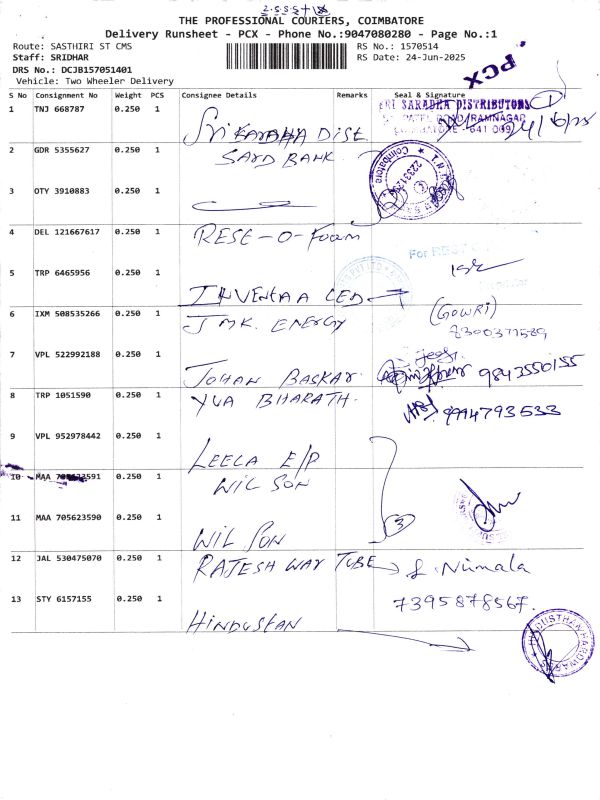 THE PROFESSIONAL COURIERS, COIMBATORE
Delivery Runsheet - PCX - Phone No.:9047080280 - Page No.:1
Route: SASTHIRI ST CMS
RS No.: 1570514
Staff: SRIDHAR
RS Date: 24-Jun-2025
DRS No.: DCJB157051401
Vehicle: Two Wheeler Delivery
PCX
S No Consignment No Weight PCS Consignee Details Remarks Seal & Signature
1 TNJ 668787 0.250 1 Sri Karadha Dist
SRI SARADHA DISTRIBUTORS
PATEL ROAD, RAMNAGAR
COIMBATORE - 641 009
24/6/25
2 GDR 5355627 0.250 1 Sard Bank
Coimbatore
3 OTY 3910883 0.250 1
4 DEL 121667617 0.250 1 RESE-O-Foam
For
5 TRP 6465956 0.250 1 INVENTAA LED
6 IXM 508535266 0.250 1 JMK. ENERGY
(GOWRI)
8300371589
7 VPL 522992188 0.250 1 JOHAN BASKAR
9843550155
8 TRP 1051590 0.250 1 YUA BHARATH.
9994793533
9 VPL 952978442 0.250 1 LEELA E/P
10 MAA 591 0.250 1 WIL SON
3
11 MAA 705623590 0.250 1 WIL SON
12 JAL 530475070 0.250 1 RAJESH WAY TUBE
S. Nirmala
7395878567.
13 STY 6157155 0.250 1 HINDUSTAN
HINDUSTHAN HARDWARES